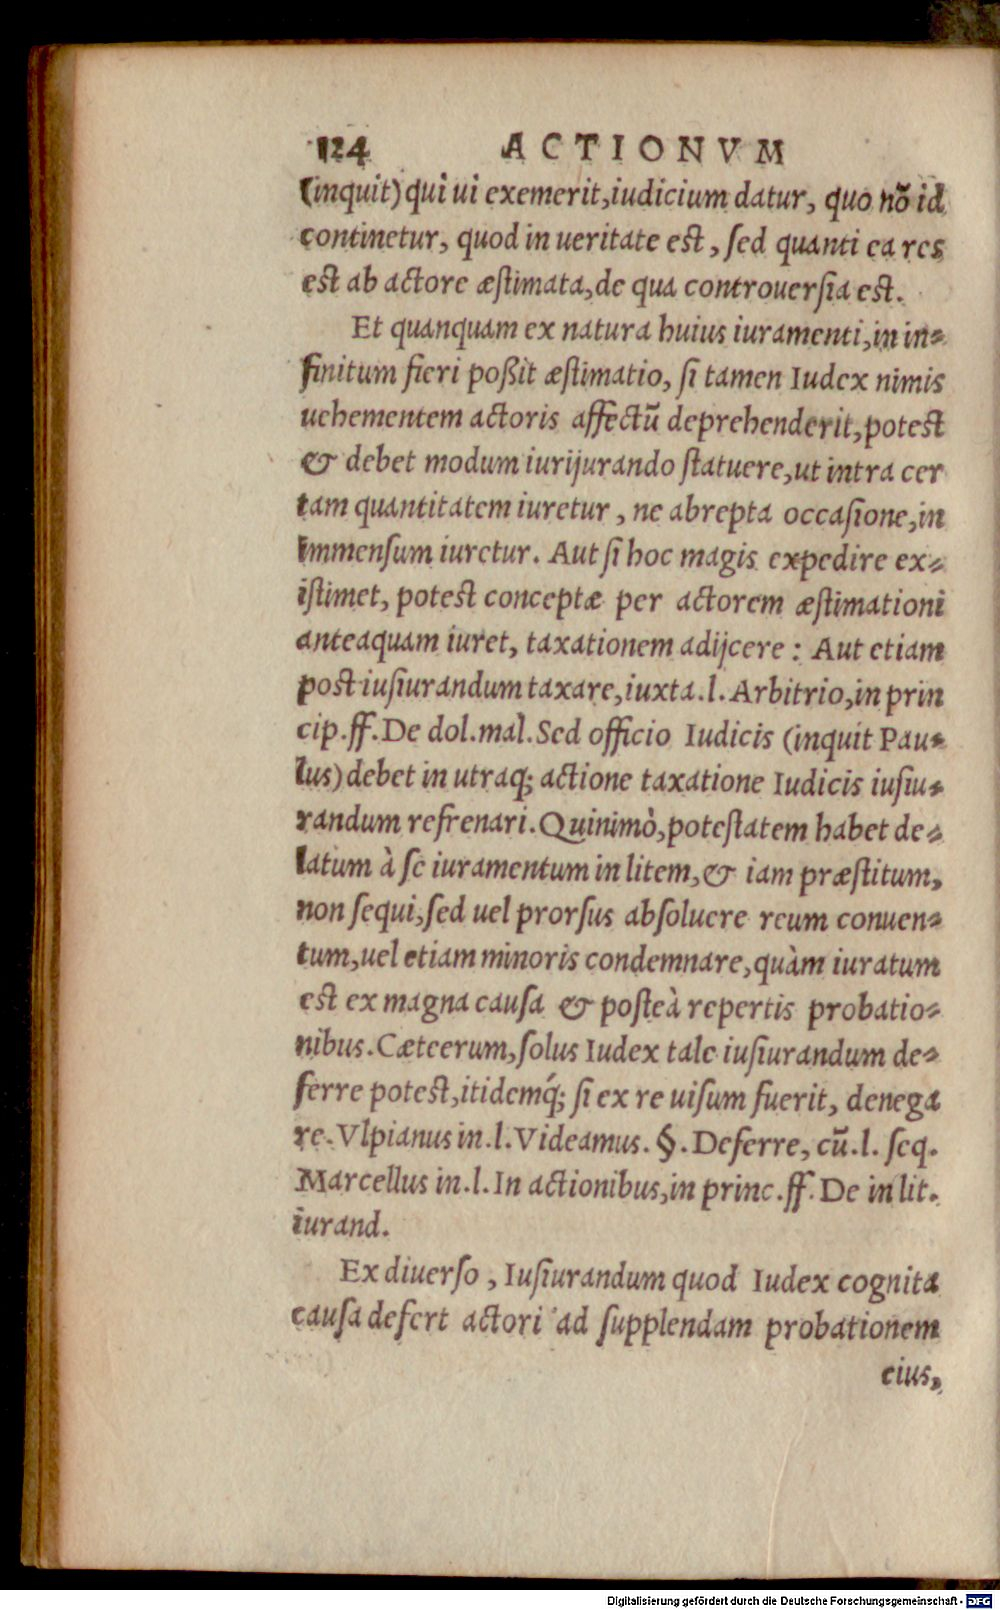 124 ACTIONVM
(inquit) qui ui exemerit, iudicium datur, quo nõ id
continetur, quod in ueritate est, sed quanti ea res
est ab actore æstimata, de qua controuersia est.
Et quanquam ex natura huius iuramenti, in in-
finitum fieri poßit æstimatio, si tamen Iudex nimis
uehementem actoris affectũ deprehenderit, potest
& debet modum iurijurando statuere, ut intra cer
tam quantitatem iuretur, ne abrepta occasione, in
immensum iuretur. Aut si hoc magis expedire ex-
istimet, potest conceptæ per actorem æstimationi
anteaquam iuret, taxationem adijcere: Aut etiam
post iusiurandum taxare, iuxta.l. Arbitrio, in prin
cip.ff. De dol.mal. Sed officio Iudicis (inquit Pau-
lus) debet in utraq; actione taxatione Iudicis iusiu-
randum refrenari. Quinimò, potestatem habet de-
latum à se iuramentum in litem, & iam præstitum,
non sequi, sed uel prorsus absoluere reum conuen-
tum, uel etiam minoris condemnare, quàm iuratum
est ex magna causa & posteà repertis probatio-
nibus. Cæteerum, solus Iudex tale iusiurandum de-
ferre potest, itidemq́; si ex re uisum fuerit, denega
re. Vlpianus in.l. Videamus. §. Deferre, cũ.l. seq.
Marcellus in.l. In actionibus, in princ.ff. De in lit.
iurand.
Ex diuerso, Iusiurandum quod Iudex cognita
causa defert actori ad supplendam probationem
eius,
Digitalisierung gefördert durch die Deutsche Forschungsgemeinschaft - DFG